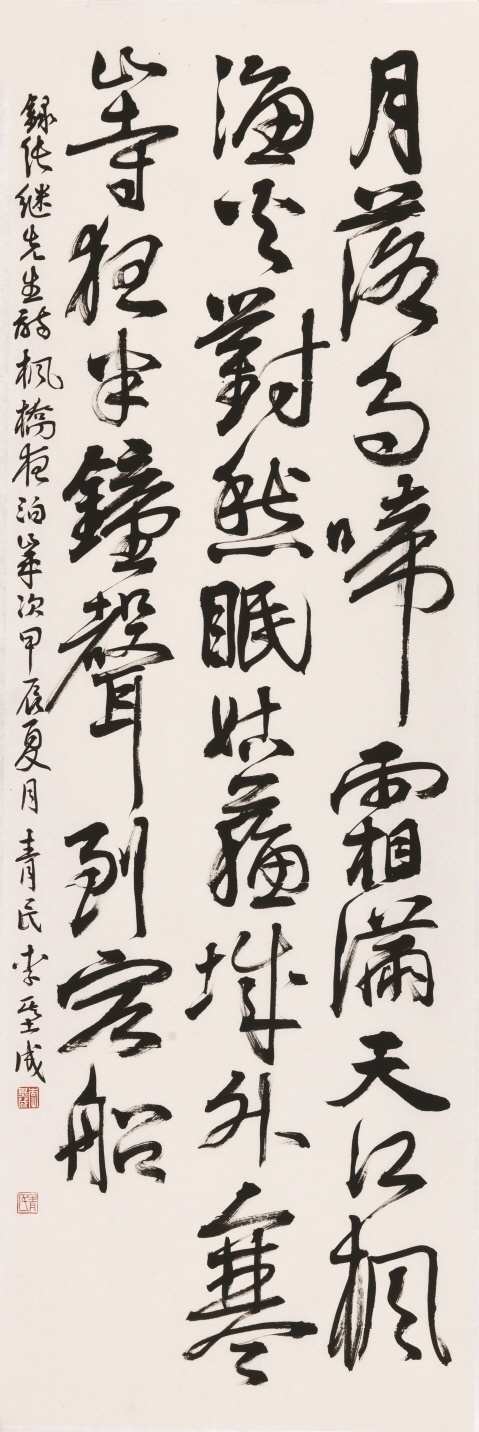 月落烏啼霜滿天江枫
漁火對愁眠姑蘇城外寒
山寺夜半鐘聲到客船
録张继先生诗枫橋夜泊嵗次甲辰夏月青民李成